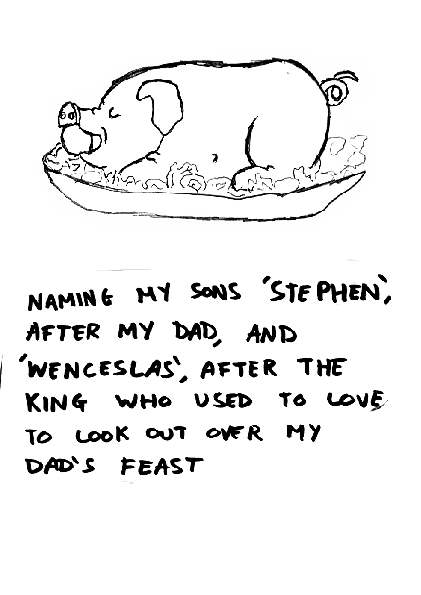 NAMING MY SONS 'STEPHEN',
AFTER MY DAD, AND
'WENCESLAS', AFTER THE
KING WHO USED TO LOVE
TO LOOK OUT OVER MY
DAD'S FEAST